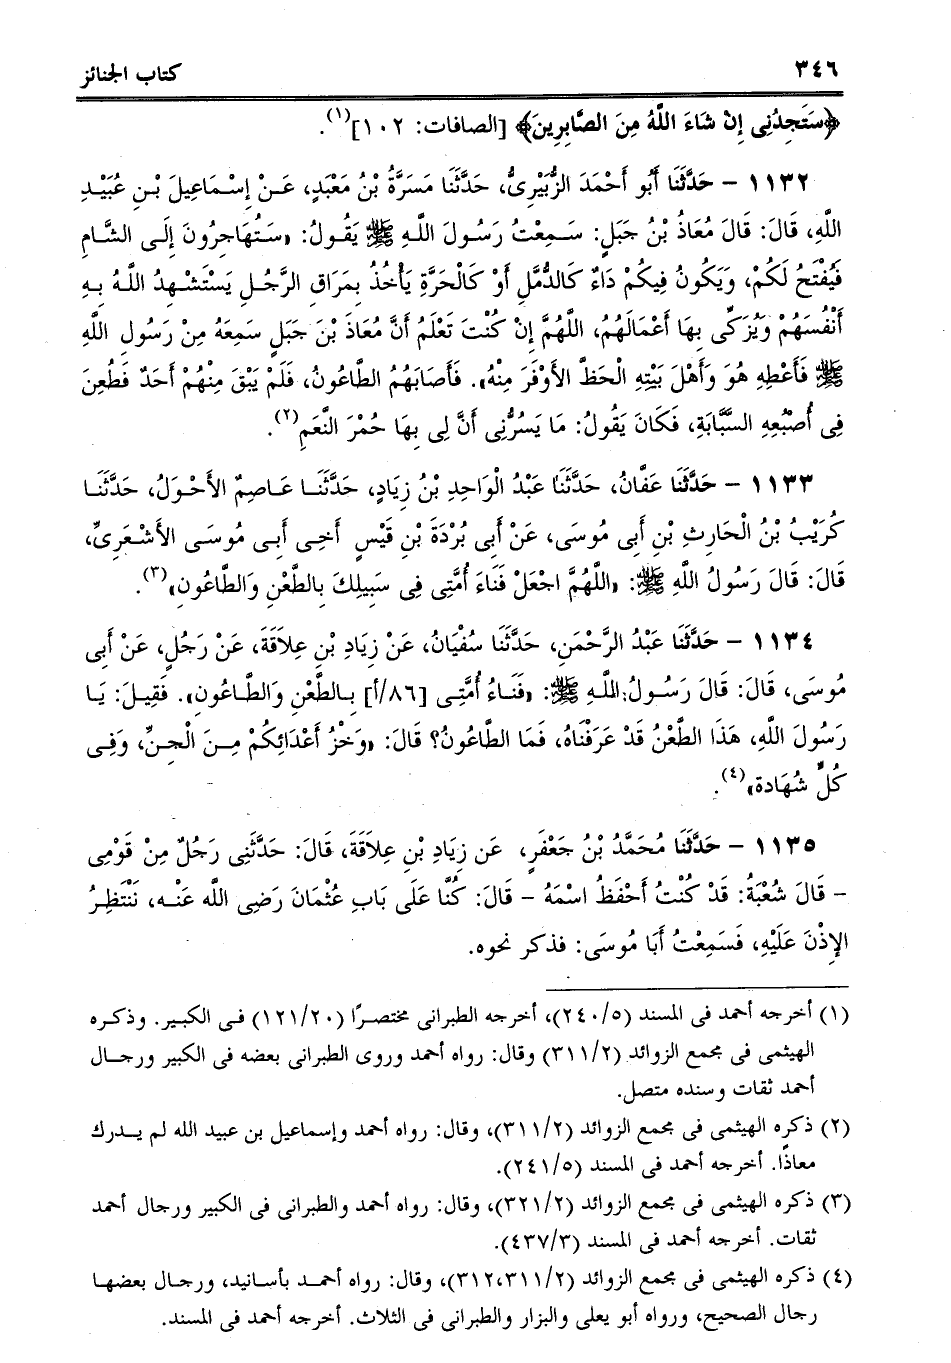 ٣٤٦ كتاب الجنائز
﴿سَتَجِدُنِى إِنْ شَاءَ اللَّهُ مِنَ الصَّابِرِينَ﴾ [الصافات: ١٠٢](١).
١١٣٢ – حَدَّثَنَا أَبُو أَحْمَدَ الزُّبَيْرِىُّ، حَدَّثَنَا مَسَرَّةُ بْنُ مَعْبَدٍ، عَنْ إِسْمَاعِيلَ بْنِ عُبَيْدِ
اللَّهِ، قَالَ: قَالَ مُعَاذُ بْنُ جَبَلٍ: سَمِعْتُ رَسُولَ اللَّهِ ﷺ يَقُولُ: «سَتُهَاجِرُونَ إِلَى الشَّامِ
فَيُفْتَحُ لَكُمْ، وَيَكُونُ فِيكُمْ دَاءٌ كَالدُّمَّلِ أَوْ كَالْحَرَّةِ يَأْخُذُ بِمَرَاقِ الرَّجُلِ يَسْتَشْهِدُ اللَّهُ بِهِ
أَنْفُسَهُمْ وَيُزَكِّى بِهَا أَعْمَالَهُمْ، اللَّهُمَّ إِنْ كُنْتَ تَعْلَمُ أَنَّ مُعَاذَ بْنَ جَبَلٍ سَمِعَهُ مِنْ رَسُولِ اللَّهِ
ﷺ فَأَعْطِهِ هُوَ وَأَهْلَ بَيْتِهِ الْحَظَّ الأَوْفَرَ مِنْهُ». فَأَصَابَهُمُ الطَّاعُونُ، فَلَمْ يَبْقَ مِنْهُمْ أَحَدٌ فَطُعِنَ
فِى أُصْبُعِهِ السَّبَّابَةِ، فَكَانَ يَقُولُ: مَا يَسُرُّنِى أَنَّ لِى بِهَا حُمْرَ النَّعَمِ(٢).
١١٣٣ – حَدَّثَنَا عَفَّانُ، حَدَّثَنَا عَبْدُ الْوَاحِدِ بْنُ زِيَادٍ، حَدَّثَنَا عَاصِمٌ الأَحْوَلُ، حَدَّثَنَا
كُرَيْبُ بْنُ الْحَارِثِ بْنِ أَبِى مُوسَى، عَنْ أَبِى بُرْدَةَ بْنِ قَيْسٍ أَخِى أَبِى مُوسَى الأَشْعَرِىِّ،
قَالَ: قَالَ رَسُولُ اللَّهِ ﷺ: «اللَّهُمَّ اجْعَلْ فَنَاءَ أُمَّتِى فِى سَبِيلِكَ بِالطَّعْنِ وَالطَّاعُونِ»(٣).
١١٣٤ – حَدَّثَنَا عَبْدُ الرَّحْمَنِ، حَدَّثَنَا سُفْيَانُ، عَنْ زِيَادِ بْنِ عِلاَقَةَ، عَنْ رَجُلٍ، عَنْ أَبِى
مُوسَى، قَالَ: قَالَ رَسُولُ اللَّهِ ﷺ: «فَنَاءُ أُمَّتِى [٨٦/أ] بِالطَّعْنِ وَالطَّاعُونِ». فَقِيلَ: يَا
رَسُولَ اللَّهِ، هَذَا الطَّعْنُ قَدْ عَرَفْنَاهُ، فَمَا الطَّاعُونُ؟ قَالَ: «وَخْزُ أَعْدَائِكُمْ مِنَ الْجِنِّ، وَفِى
كُلٍّ شُهَادة»(٤).
١١٣٥ – حَدَّثَنَا مُحَمَّدُ بْنُ جَعْفَرٍ، عَن زِيَادِ بْنِ عِلاَقَةَ، قَالَ: حَدَّثَنِى رَجُلٌ مِنْ قَوْمِى
– قَالَ شُعْبَةُ: قَدْ كُنْتُ أَحْفَظُ اسْمَهُ – قَالَ: كُنَّا عَلَى بَابِ عُثْمَانَ رَضِى اللَّه عَنْه، نَنْتَظِرُ
الإِذْنَ عَلَيْهِ، فَسَمِعْتُ أَبَا مُوسَى: فذكر نحوه.
(١) أخرجه أحمد فى المسند (٢٤٠/٥)، أخرجه الطبرانى مختصرًا (١٢١/٢٠) فى الكبير. وذكره
الهيثمى فى مجمع الزوائد (٣١١/٢) وقال: رواه أحمد وروى الطبرانى بعضه فى الكبير ورجال
أحمد ثقات وسنده متصل.
(٢) ذكره الهيثمى فى مجمع الزوائد (٣١١/٢)، وقال: رواه أحمد وإسماعيل بن عبيد الله لم يدرك
معاذًا. أخرجه أحمد فى المسند (٢٤١/٥).
(٣) ذكره الهيثمى فى مجمع الزوائد (٣٢١/٢)، وقال: رواه أحمد والطبرانى فى الكبير ورجال أحمد
ثقات. أخرجه أحمد فى المسند (٤٣٧/٣).
(٤) ذكره الهيثمى فى مجمع الزوائد (٣١٢،٣١١/٢)، وقال: رواه أحمد بأسانيد، ورجال بعضها
رجال الصحيح، ورواه أبو يعلى والبزار والطبرانى فى الثلاث. أخرجه أحمد فى المسند.